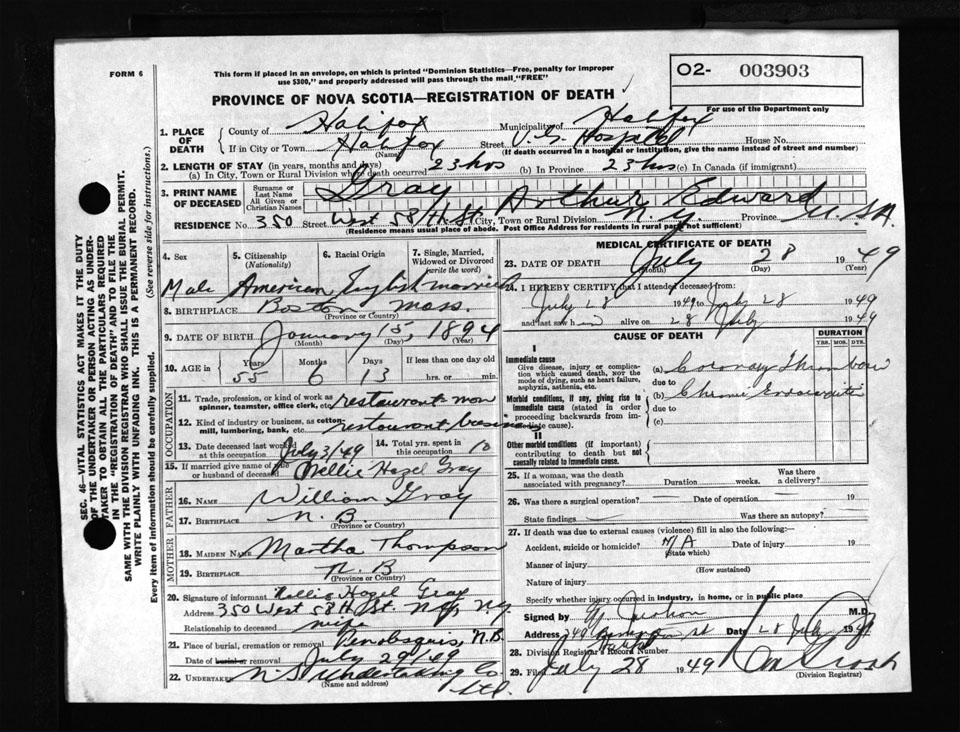 FORM 6
This form if placed in an envelope, on which is printed "Dominion Statistics—Free, penalty for improper
use $300," and properly addressed will pass through the mail, "FREE"
O2- 003903
For use of the Department only
PROVINCE OF NOVA SCOTIA—REGISTRATION OF DEATH
1. PLACE OF DEATH
County of Halifax Municipality of Halifax
If in City or Town Halifax Street V.G. Hospital House No.
(Name) (If death occurred in a hospital or institution, give the name instead of street and number)
2. LENGTH OF STAY (in years, months and days)
(a) In City, Town or Rural Division where death occurred 23 hrs (b) In Province 23 hrs (c) In Canada (if immigrant)
3. PRINT NAME OF DECEASED
Surname or Last Name Gray
All Given or Christian Names Arthur Edward
RESIDENCE No. 350 Street West 58th St. City, Town or Rural Division N.Y. Province U.S.A.
(Residence means usual place of abode. Post Office Address for residents in rural parts not sufficient)
4. Sex Male
5. Citizenship (Nationality) American
6. Racial Origin English
7. Single, Married, Widowed or Divorced (write the word) married
8. BIRTHPLACE Boston Mass.
(Province or Country)
9. DATE OF BIRTH January 15, 1894
(Month) (Day) (Year)
10. AGE in Years Months Days If less than one day old
55 6 13 hrs. or min.
OCCUPATION
11. Trade, profession, or kind of work as spinner, teamster, office clerk, etc. restaurant man
12. Kind of industry or business, as cotton mill, lumbering, bank, etc. restaurant business
13. Date deceased last worked at this occupation July 3/49
14. Total yrs. spent in 10
15. If married give name of wife or husband of deceased Nellie Hazel Gray
FATHER
16. NAME William Gray
17. BIRTHPLACE N. B
(Province or Country)
MOTHER
18. MAIDEN NAME Martha Thompson
19. BIRTHPLACE N. B
(Province or Country)
20. Signature of informant Nellie Hazel Gray
Address 350 West 58th St. N.Y. N.Y.
Relationship to deceased wife
21. Place of burial, cremation or removal Penobsquis, N.B.
Date of burial or removal July 29/49
22. UNDERTAKER N.S. Undertaking Co Ltd.
(Name and address)
MEDICAL CERTIFICATE OF DEATH
23. DATE OF DEATH July 28 1949
(Month) (Day) (Year)
24. I HEREBY CERTIFY that I attended deceased from:
July 28 1949 to July 28 1949
and last saw him alive on 28 July 1949
CAUSE OF DEATH
DURATION
YRS. MOS. DYS.
I
Immediate cause
Give disease, injury or complication which caused death, NOT the mode of dying, such as heart failure, asphyxia, asthenia, etc.
(a) Coronary Thrombosis
due to
Morbid conditions, if any, giving rise to immediate cause (stated in order proceeding backwards from immediate cause)
(b) Chronic
due to
(c)
II
Other morbid conditions (if important) contributing to death but not causally related to immediate cause.
25. If a woman, was the death associated with pregnancy? Duration weeks. Was there a delivery?
26. Was there a surgical operation? Date of operation 19
State findings Was there an autopsy?
27. If death was due to external causes (violence) fill in also the following:—
Accident, suicide or homicide? N/A Date of injury 19
(State which)
Manner of injury
(How sustained)
Nature of injury
Specify whether injury occurred in industry, in home, or in public place
Signed by M.D.
Address 249 St Date 28 July 1949
28. Division Registrar's Record Number
29. Filed July 28 1949
(Division Registrar)
SEC. 46—VITAL STATISTICS ACT MAKES IT THE DUTY
OF THE UNDERTAKER OR PERSON ACTING AS UNDER-
TAKER TO OBTAIN ALL THE PARTICULARS REQUIRED
IN THE "REGISTRATION OF DEATH" AND TO FILE THE
SAME WITH THE DIVISION REGISTRAR WHO SHALL ISSUE THE BURIAL PERMIT.
WRITE PLAINLY WITH UNFADING INK. THIS IS A PERMANENT RECORD.
Every item of information should be carefully supplied. (See reverse side for instructions.)